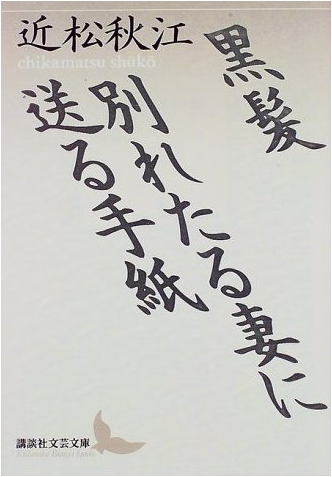 近松秋江
chikamatsu shūkō
黒髪
別れたる妻に
送る手紙
講談社文芸文庫
Kōdansha Bungei bunko